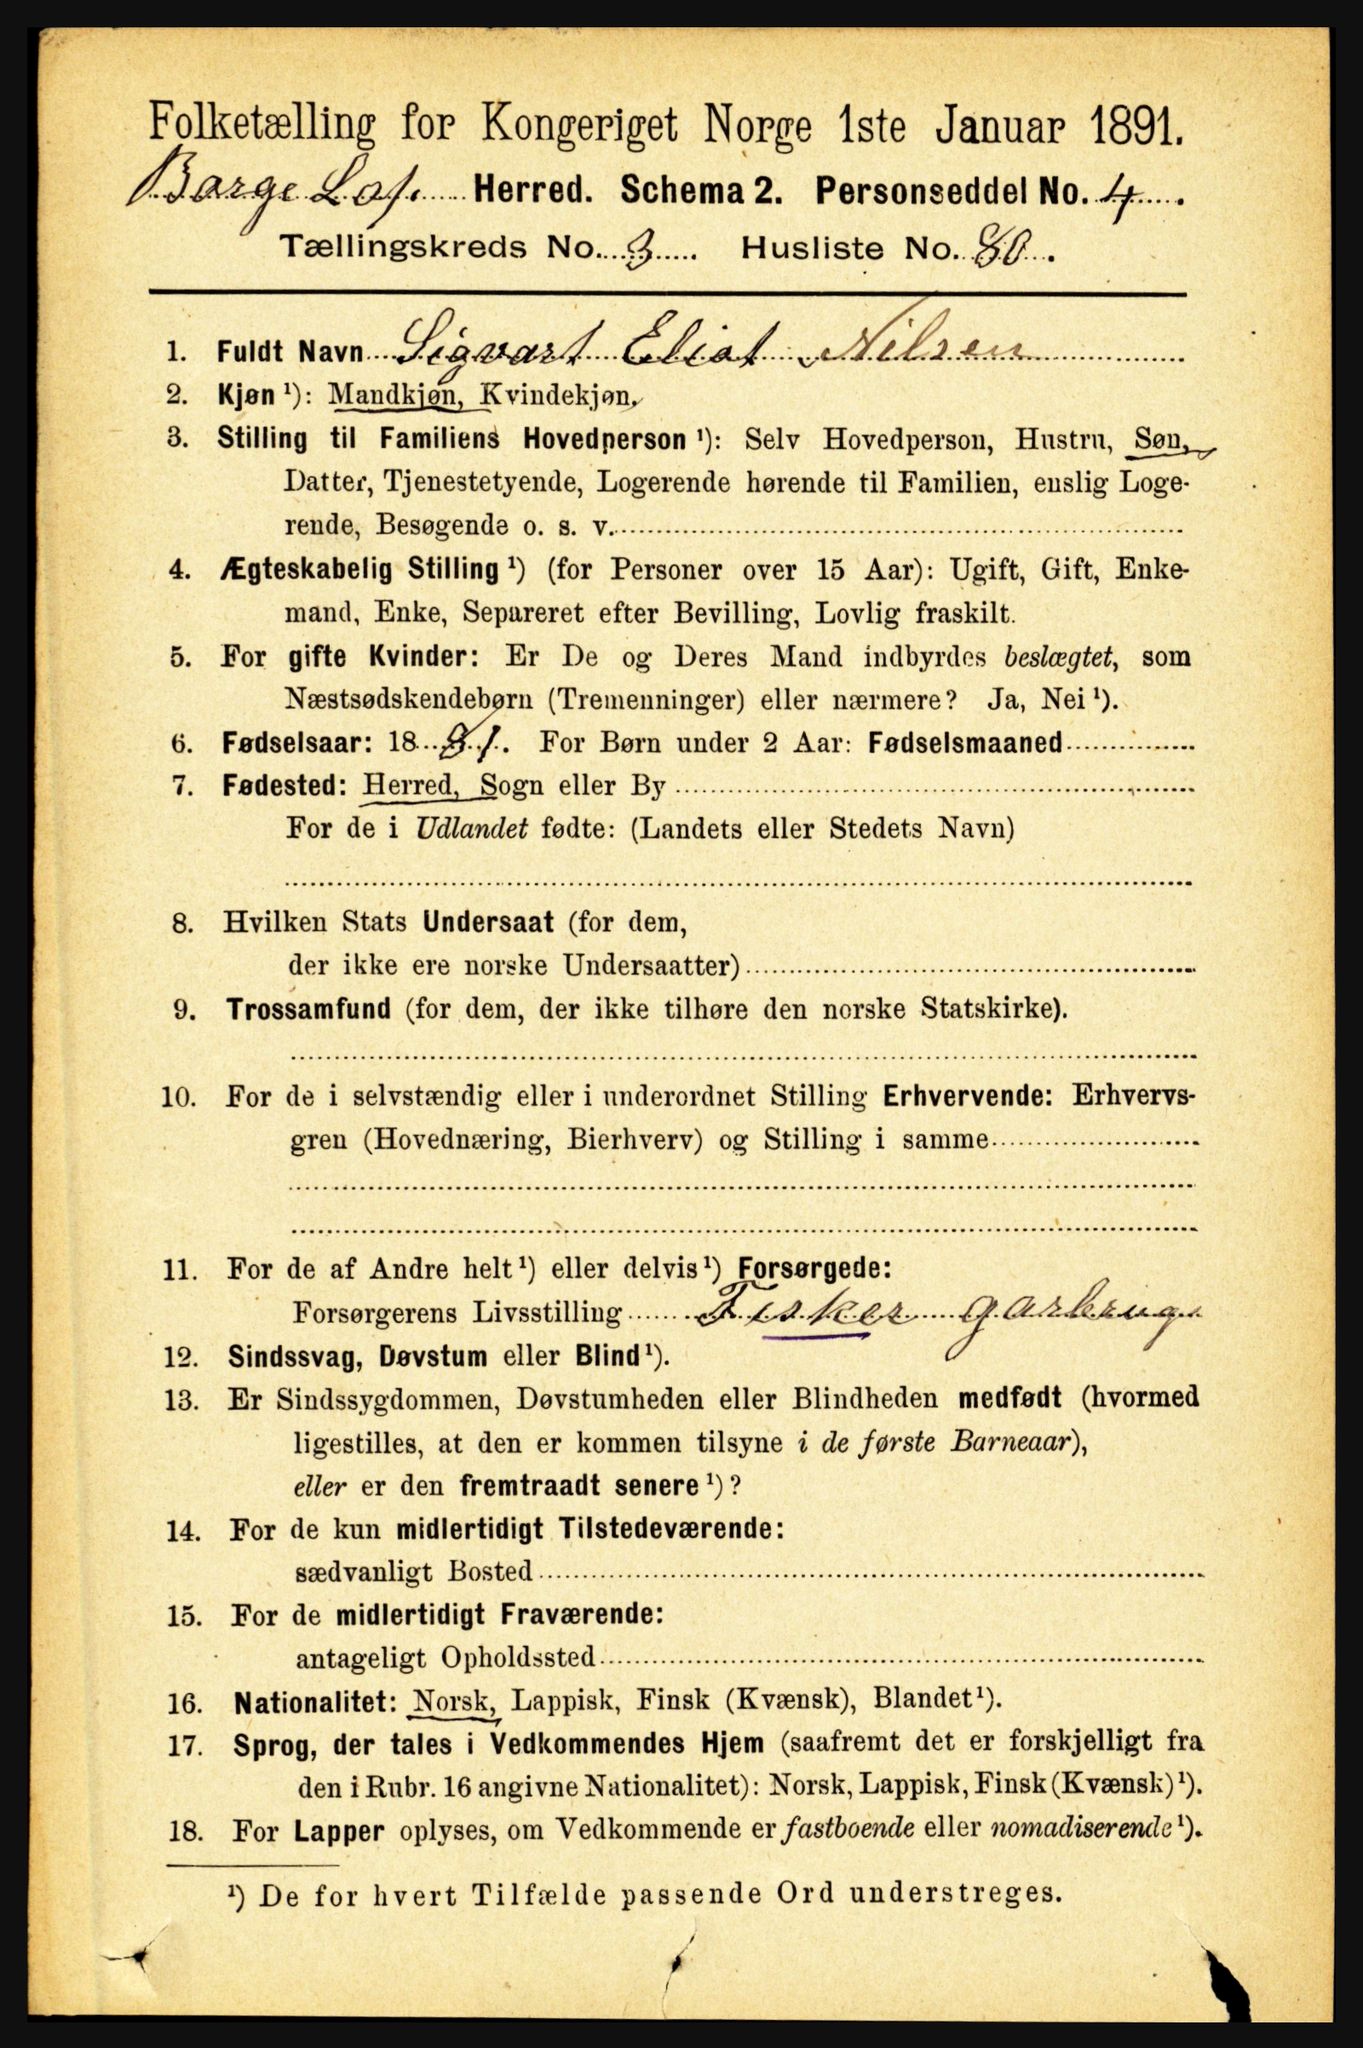 Folketælling for Kongeriget Norge 1ste Januar 1891.
Borge Lof. Herred. Schema 2. Personseddel No. 4.
Tællingskreds No. 3. Husliste No. 80.
1. Fuldt Navn Sigvart Eliat Nilsen
2. Kjøn ¹): Mandkjøn, Kvindekjøn.
3. Stilling til Familiens Hovedperson ¹): Selv Hovedperson, Hustru, Søn,
Datter, Tjenestetyende, Logerende hørende til Familien, enslig Loge-
rende, Besøgende o. s. v.
4. Ægteskabelig Stilling ¹) (for Personer over 15 Aar): Ugift, Gift, Enke-
mand, Enke, Separeret efter Bevilling, Lovlig fraskilt.
5. For gifte Kvinder: Er De og Deres Mand indbyrdes beslægtet, som
Næstsødskendebørn (Tremenninger) eller nærmere? Ja, Nei ¹).
6. Fødselsaar: 1881. For Børn under 2 Aar: Fødselsmaaned
7. Fødested: Herred, Sogn eller By
For de i Udlandet fødte: (Landets eller Stedets Navn)
8. Hvilken Stats Undersaat (for dem,
der ikke ere norske Undersaatter)
9. Trossamfund (for dem, der ikke tilhøre den norske Statskirke).
10. For de i selvstændig eller i underordnet Stilling Erhvervende: Erhvervs-
gren (Hovednæring, Bierhverv) og Stilling i samme
11. For de af Andre helt ¹) eller delvis ¹) Forsørgede:
Forsørgerens Livsstilling Fisker garbrug
12. Sindssvag, Døvstum eller Blind ¹).
13. Er Sindssygdommen, Døvstumheden eller Blindheden medfødt (hvormed
ligestilles, at den er kommen tilsyne i de første Barneaar),
eller er den fremtraadt senere ¹)?
14. For de kun midlertidigt Tilstedeværende:
sædvanligt Bosted
15. For de midlertidigt Fraværende:
antageligt Opholdssted
16. Nationalitet: Norsk, Lappisk, Finsk (Kvænsk), Blandet ¹).
17. Sprog, der tales i Vedkommendes Hjem (saafremt det er forskjelligt fra
den i Rubr. 16 angivne Nationalitet): Norsk, Lappisk, Finsk (Kvænsk) ¹).
18. For Lapper oplyses, om Vedkommende er fastboende eller nomadiserende ¹).
¹) De for hvert Tilfælde passende Ord understreges.